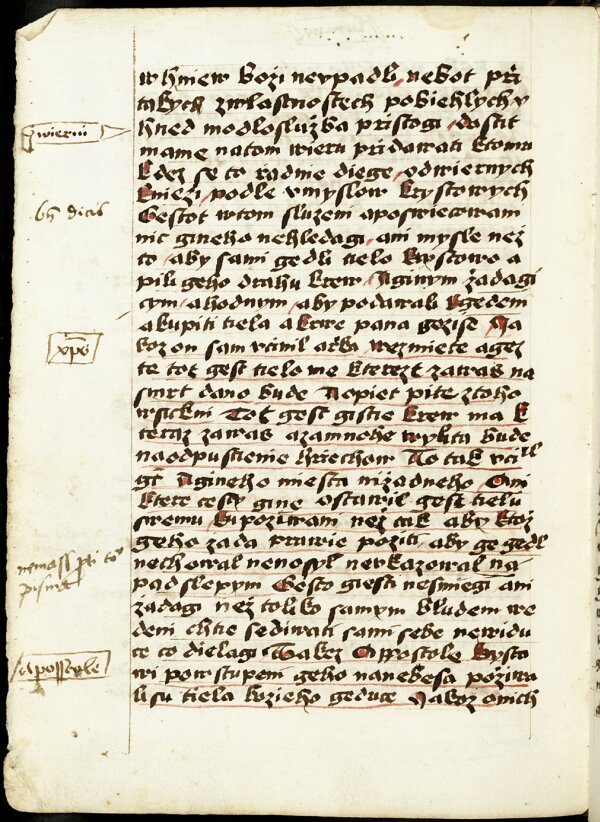 w hniew bozi neupadl, nebot při
takych zwlastnostech pobiehlych y
hned modlosluzba pristogi dostit
mame natom wieru přidawati ktomu
kdez se to radnie diege, odwiernych
kniezi, podle umyslow krystowych
Gestot wtom sluzeni aposwiecowani
nic gineho nehledagi, ani mysle nez
to, aby sami gedli tielo krystowo a
pili geho drahu krew, Aginym zadagi
cym, ahodnym, aby podawali kgedeni
akupiti tiela akrwe pana gezise Ya
koz on sam vcinil arka, wezmiete agez
te tot gest tielo me kterezt zawas na
smrt dano bude Aopiet pite ztoho
wsickni Tot gest gistie krew ma k
teraz zawas azamnohe wylita bude
naodpustienie hriechow To tak vcinil
gt Agineho miesta nizadneho Ani
ktere cesty gine ostawil gest tielu
swemu kpoziwani nez tak aby ktoz
geho zada prawie poziti aby ge gedl
nechowal nenosyl neukazowal na
pad slepym Gesto giesti nesmiegi ani
zadagi nez toliko samym bludem we
deni chtie se diwati sami sebe newidu
ce co dielagi Takez Appostole krysto
wi powstupeni geho nanebesa poziwa
li su tiela bozieho geduce Yakoz onich
wierni
65 dicis
xpus
nemass pri to
pisma
Apostole